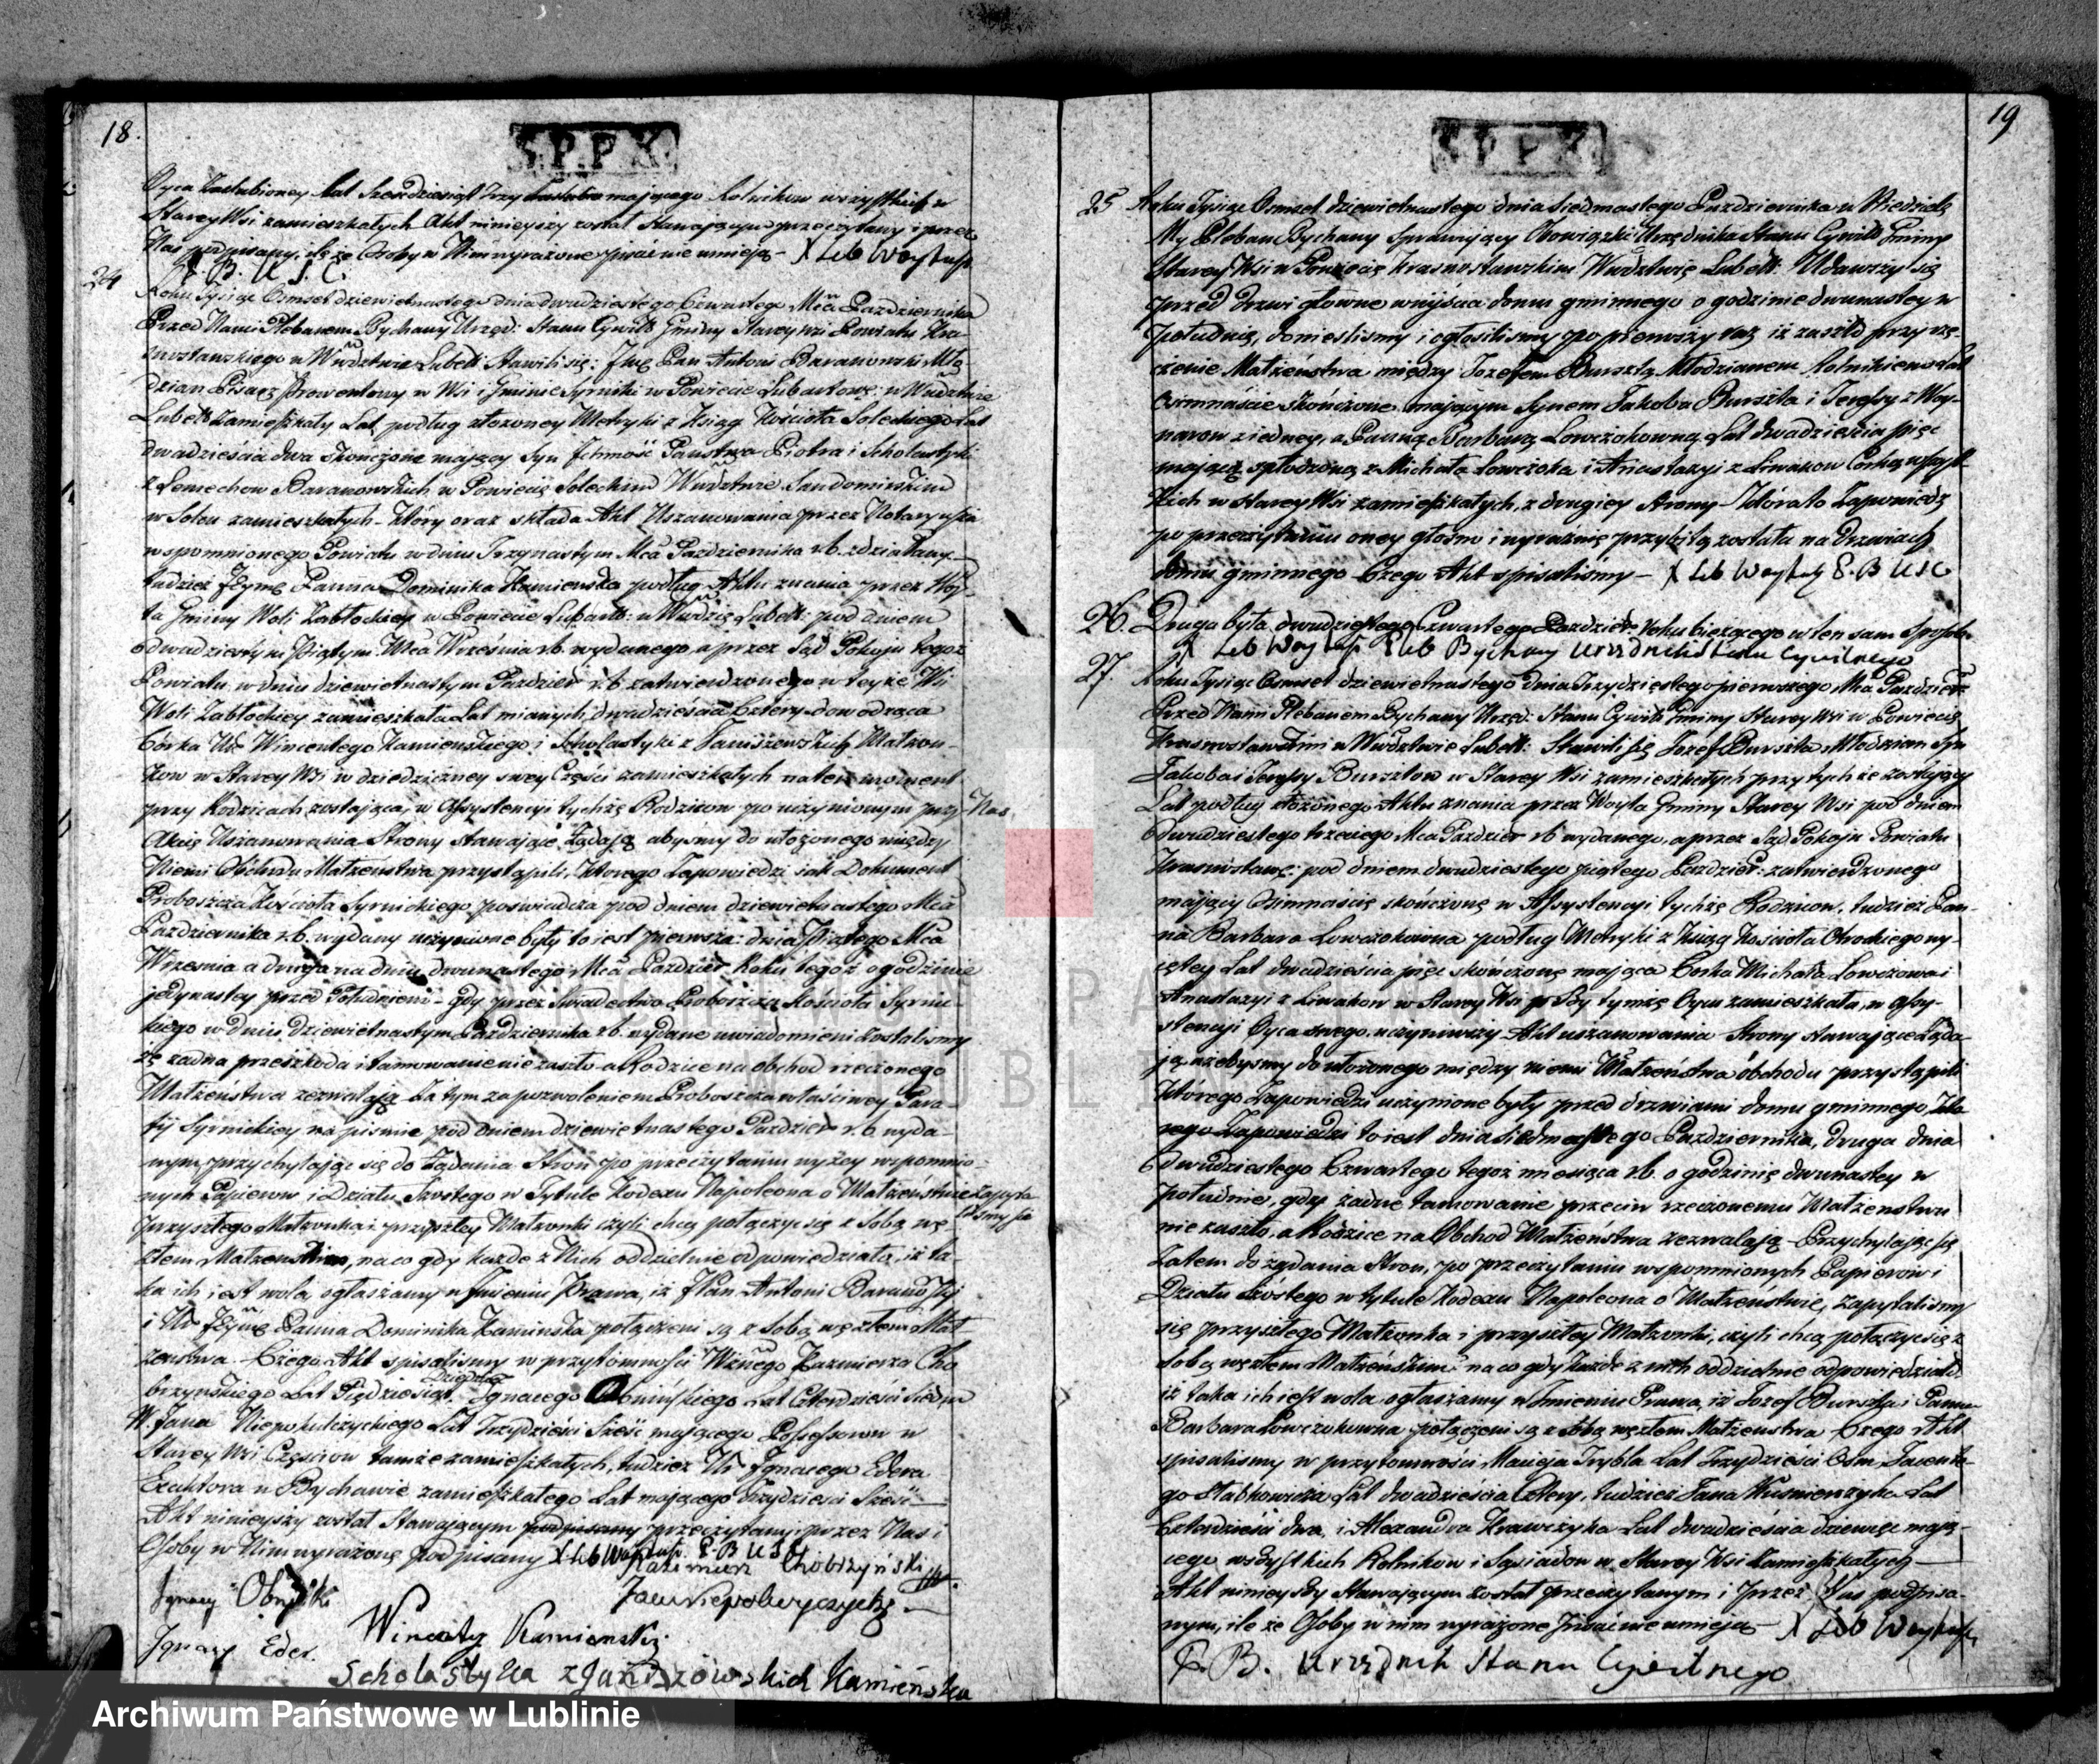 18.
S.P.P.K.
Oyca Zaslubioney lat Szesdziesiąt Trzy maiącego Rolnikow wszystkich w
Starey Wsi zamieszkałych Akt ninieyszy został Stawaiącym przeczytany i przez
Nas podpisany, ile że Osoby w Nim wyrażone pisać nie umieią – X Leb Woytas
P. B. U. S. C.
24 Roku Tysiąc Osmset dziewietnastego dnia dwudziestego Czwartego Mca Pazdziernika
Przed Nami Plebanem Bychawy Urzęd: Stanu Cywill: Gminy Starey Wsi Powiatu Kra-
snostawskiego w Wdztwie Lubell: Stawili się: Pan Antoni Baranowski Mło-
dzian Pisarz Prowentowy w Wsi i Gminie Syrniki w Powiecie Lubartows: w Wdztwie
Lubells: zamieszkały Lat podług złożoney Metryki z Xsiąg Kościoła Soleckiego Lat
dwadzieścia dwa skończone maiący Syn Jchmość Państwa Piotra i Scholastyki
z Lemechow Baranowskich w Powiecie Soleckim Wdztwie Sandomirskim
w Solcu zamieszkałych – który oraz składa Akt Uszanowania przez Notaryusza
wspomnionego Powiatu w dniu Trzynastym Mca Pazdziernika r.b. zdziałany –
tudzież Panna Dominika Kamienska podług Aktu znania przez Woy-
ta Gminy Woli Zabłockiey w Powiecie Lubart: w Wdztwie Lubell: pod dniem
dwudziestym Piątym Mca Września r.b. wydanego, a przez Sąd Pokoju tegoż
Powiatu w dniu dziewietnastym Pazdzier r.b. zatwierdzonego w teyże Wsi
Woli Zabłockiey zamieszkała Lat mianych dwadzieścia Cztery dowodząca
Córka Ur. Wincentego Kamienskiego i Scholastyki z Janiszewskich Małżon-
kow w Starey Wsi w dziedziczney swey Części zamieszkałych na ten moment
przy Rodzicach zostaiąca, w Assystencyi tychże Rodzicow po uczynionym przy Nas
Akcie Uszanowania Strony Stawaiące Żądaią abyśmy do ułożonego między
Niemi Obchodu Małżeństwa przystąpili, którego Zapowiedzi iak Dokument
Proboszcza Kościoła Syrnickiego poswiadcza pod dniem dziewietnastego Mca
Pazdziernika r.b. wydany uczynione były to iest pierwsza: dnia Piątego Mca
Wrzesnia a druga na dniu dwunastego Mca Pazdzier Roku tegoż o godzinie
jedynastey przed Południem – gdy przez Swiadectwo Proboszcza Kościoła Syrnic-
kiego w dniu dziewietnastym Pazdziernika r.b. wydane uwiadomieni zostalismy
że żadna przeszkoda i tamowanie nie zaszło a Rodzice na obchod rzeczonego
Małżeństwa zezwalaią Za tym za pozwoleniem Proboszcza właściwey Para-
fij Syrnickiey na pismie pod dniem dziewietnastego Pazdzier r.b. wyda-
nym, przychylaiąc się do Żądania Stron po przeczytaniu wyżey wspomnio-
nych Papierow i Działu Szostego w Tytule Kodexu Napoleona o Małżeństwie Zapyta-
liśmy się
przyszłego Małżonka i przyszłey Małżonki czyli chcą połączyć się z sobą wę-
złem Małżeństwa, na co gdy każde z Nich oddzielnie odpowiedziało, iż ta-
ka ich iest wola ogłaszamy w Imieniu Prawa, iż JPan Antoni Baranowski
i Panna Dominika Kaminska połączeni są z sobą węzłem Mał-
żenstwa. Czego Akt spisalismy w przytomności Kazmierza Cho
brzynskiego Lat Pięćdziesiąt, Ignacego Obnińskiego Lat Czterdzieści Siedm
W. Jana Niepokulczyckiego Lat Trzydzieści Sześć maiącego Possessorow w
Starey Wsi Częściow tamże zamieszkałych, tudzież Ur Ignacego Edera
Exaktora w Bychawie zamieszkałego Lat maiącego Trzydzieści Sześć –
Akt ninieyszy został Stawaiącym przeczytany i przez Nas i
Osoby w Nim wyrażone podpisany X Leb Woytas. P. B U S C
Kazimierz Chobrzyński
Ignacy Obniski
Jan Niepokulczycki
Wincenty Kamienski
Ignacy Eder.
Scholastyka z Janiszowskich Kamieńska
19
S.P.P.K.
25 Roku Tysiąc Osmset dziewietnastego dnia Siedmnastego Pazdziernika w Niedzielę
My Pleban Bychawy Sprawuiący Obowiązki Urzędnika Stanu Cywill: Gminy
Starey Wsi w Powiecie Krasnostawskim Wdztwie Lubell: Udawszy się
przed Drzwi głowne wniyścia domu gminnego o godzinie dwunastey w
południe, donieslismy i ogłosilismy po pierwszy raz iż zaszło przyrze-
czenie Małżeństwa między Jozefem Bursztą Młodzianem Rolnikiem Lat
Osmnaście skończone maiącym Synem Jakoba Burszta i Teressy z Woy-
narow z iedney, a Panną Barbarą Lowczokowną Lat dwadzieścia pięć
maiącą spłodzoną z Michała Lowczoka i Anastazyi z Liwakow Corką wszyst-
kich w Starey Wsi zamieszkałych, z drugiey Strony – Która to Zapowiedź
po przeczytaniu oney głośno i wyraźnie przybitą została na Drzwiach
domu gminnego – Czego Akt spisaliśmy – X Leb Woytas P. B U S C
26. Druga była dwudziestego Czwartego Pazdzier Roku bieżącego w ten sam sposob
X Leb Woytas Pleb Bychawy Urzędnik Stanu Cywilnego
27. Roku Tysiąc Osmset dziewietnastego dnia Trzydziestego pierwszego Mca Pazdzier
Przed Nami Plebanem Bychawy Urzęd: Stanu Cywill: Gminy Starey Wsi w Powiecie
Krasnostawskim w Wdztwie Lubell: Stawili się Jozef Burszta Młodzian Syn
Jakoba i Teressy Bursztow w Starey Wsi zamieszkałych przy tychże zostaiący
Lat podług złożonego Aktu znania przez Woyta Gminy Starey Wsi pod dniem
dwudziestego trzeciego Mca Pazdzier r.b. wydanego, a przez Sąd Pokoju Powiatu
Krasnostaws: pod dniem dwudziestego piątego Pazdzier: zatwierdzonego
maiący Osimnaście skończone w Assystencyi tychże Rodzicow, tudzież Pan-
na Barbara Lowczokowna podług Metryki z Xsiąg Kościoła Otrockiego wy-
iętey Lat dwadzieścia pięc skończone maiąca Corka Michała Lowczoka i
Anastazyi z Liwakow w Starey Wsi przy tymże Oycu zamieszkała, w assy-
stencyi Oyca swego, uczyniwszy Akt uszanowania Strony stawaiące Żąda-
ią, azebysmy do ułożonego między niemi Małżeństwa obchodu przystąpili
którego Zapowiedzi uczynione były przed drzwiami domu gminnego,
to iest dnia Siedmnastego Pazdziernika, druga dnia
dwudziestego Czwartego tegoż miesiąca r.b. o godzinie dwunastey w
południe, gdy żadne tamowanie przeciw rzeczonemu Małżenstwu
nie zaszło, a Rodzice na Obchod Małżeństwa zezwalaią – Przychylaiąc się
Zatem do żądania Stron, po przeczytaniu wspomnionych Papierow i
Działu Szóstego w tytule Kodexu Napoleona o Małżeństwie, zapytalismy
się przyszłego Małżonka i przyszłey Małżonki, czyli chcą połączyć się z
sobą węzłem Małżeńskim na co gdy każde z nich oddzielnie odpowiedziało
iż taka ich iest wola, ogłaszamy w Imieniu Prawa, iż Jozef Burszta i Panna
Barbara Lowczokowna połączeni są z sobą węzłem Małżenstwa. Czego Akt
spisalismy w przytomności Macieja Trybla Lat Trzydzieści Osm, Jacente-
go Słabkowicza Lat dwadzieścia Cztery, tudzież Jana Kusnierczyka Lat
Czterdzieści dwa, i Alexandra Krawczyka Lat dwadzieścia dziewięc maią-
cego wszystkich Rolnikow i Sąsiadow w Starey Wsi Zamieszkałych –
Akt ninieyszy Stawaiącym został przeczytanym i przez Nas podpisa-
nym, ile że Osoby w nim wyrażone pisać nie umieią – X Leb Woytas
P. B. Urzędnik Stanu Cywilnego
ARCHIWUM PAŃSTWOWE
W LUBLINIE
Archiwum Państwowe w Lublinie